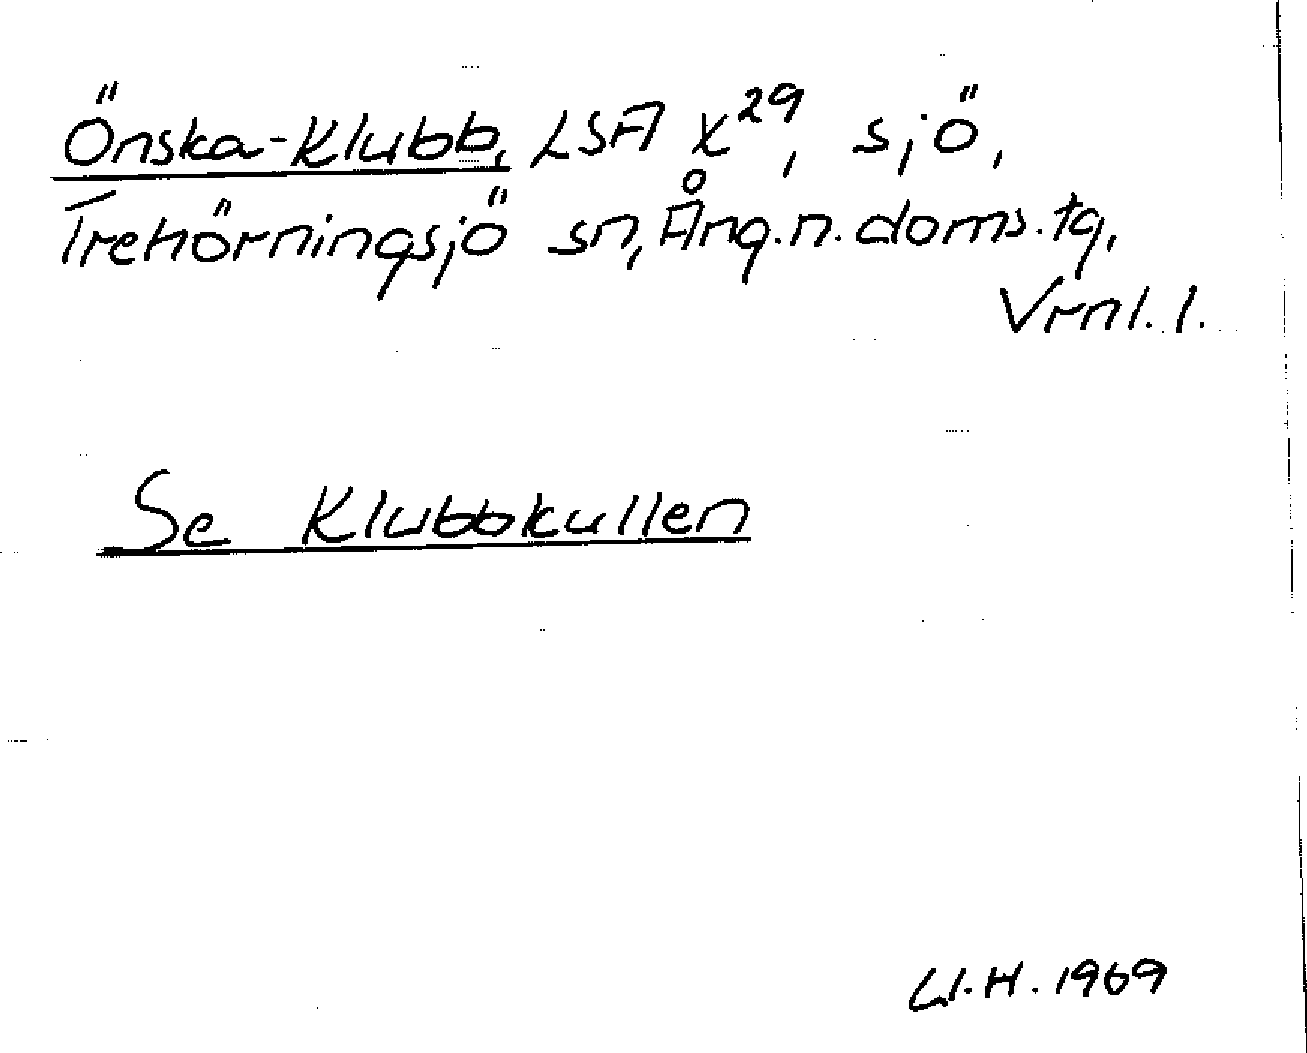 Önska-Klubb, LSA X²⁹, sjö,
Trehörningsjö sn, Ång.n.doms.tg,
Vrnl.l.
Se Klubbkullen
Ll.H. 1969